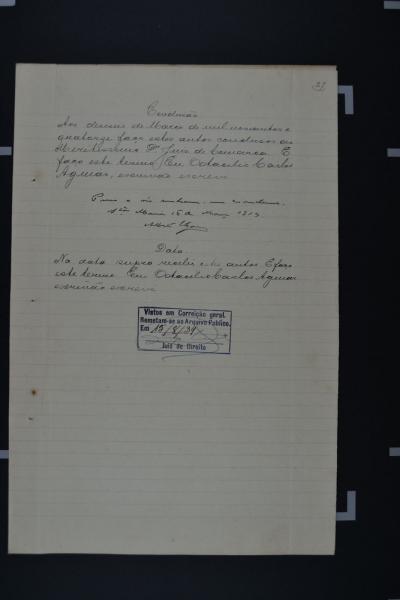 Conclusão
Aos deseseis de Março de mil novecentos e
quatorze faço estes autos conclusos ao
Meritissimo Dr. Juiz de Comarca. E
faço este termo. Eu Octacilio Carlos
Aguiar, escrivão escrevi
16 de Março 191
Data
Na data supra recebi estes autos. E faço
este termo Eu Octacilio Carlos Aguiar
escrivão escrevi
Vistos em Correição geral.
Remetam-se ao Arquivo Público.
Em
Juiz de Direito